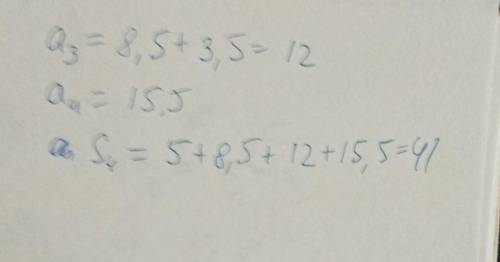 a₃ = 8,5 + 3,5 = 12
a₄ = 15,5
S₄ = 5 + 8,5 + 12 + 15,5 = 41